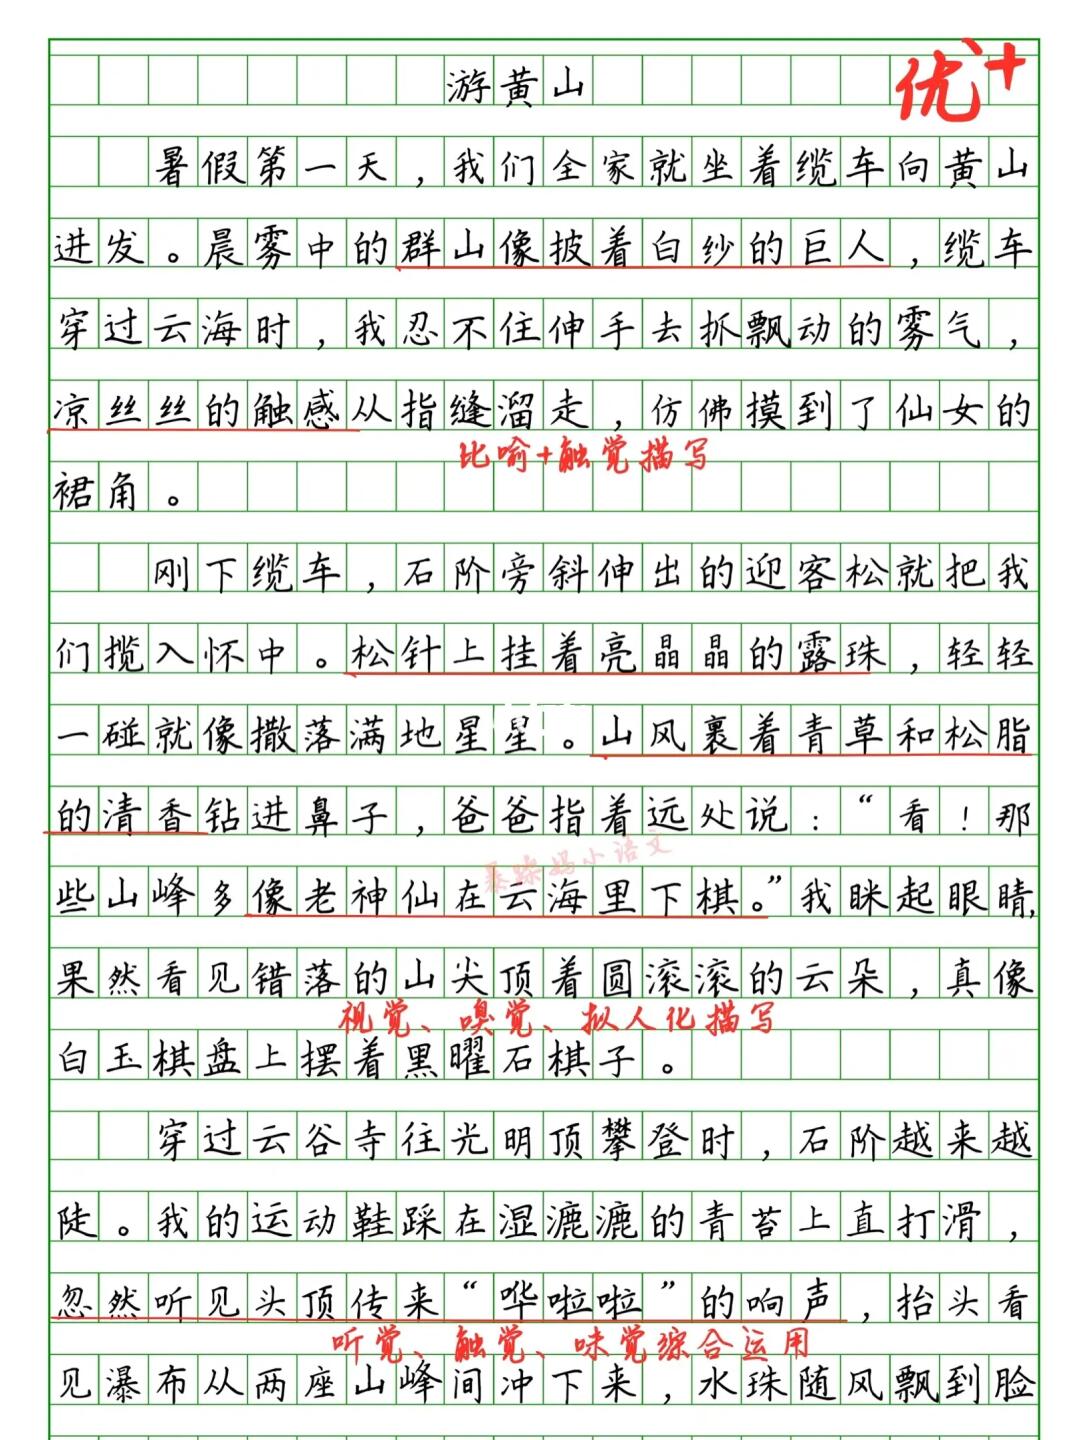 游黄山
优+
暑假第一天，我们全家就坐着缆车向黄山
进发。晨雾中的群山像披着白纱的巨人，缆车
穿过云海时，我忍不住伸手去抓飘动的雾气，
凉丝丝的触感从指缝溜走，仿佛摸到了仙女的
比喻+触觉描写
裙角。
刚下缆车，石阶旁斜伸出的迎客松就把我
们揽入怀中。松针上挂着亮晶晶的露珠，轻轻
一碰就像撒落满地星星。山风裹着青草和松脂
的清香钻进鼻子，爸爸指着远处说：“看！那
暴躁妈小语文
些山峰多像老神仙在云海里下棋。”我眯起眼睛，
果然看见错落的山尖顶着圆滚滚的云朵，真像
视觉、嗅觉、拟人化描写
白玉棋盘上摆着黑曜石棋子。
穿过云谷寺往光明顶攀登时，石阶越来越
陡。我的运动鞋踩在湿漉漉的青苔上直打滑，
忽然听见头顶传来“哗啦啦”的响声，抬头看
听觉、触觉、味觉综合运用
见瀑布从两座山峰间冲下来，水珠随风飘到脸